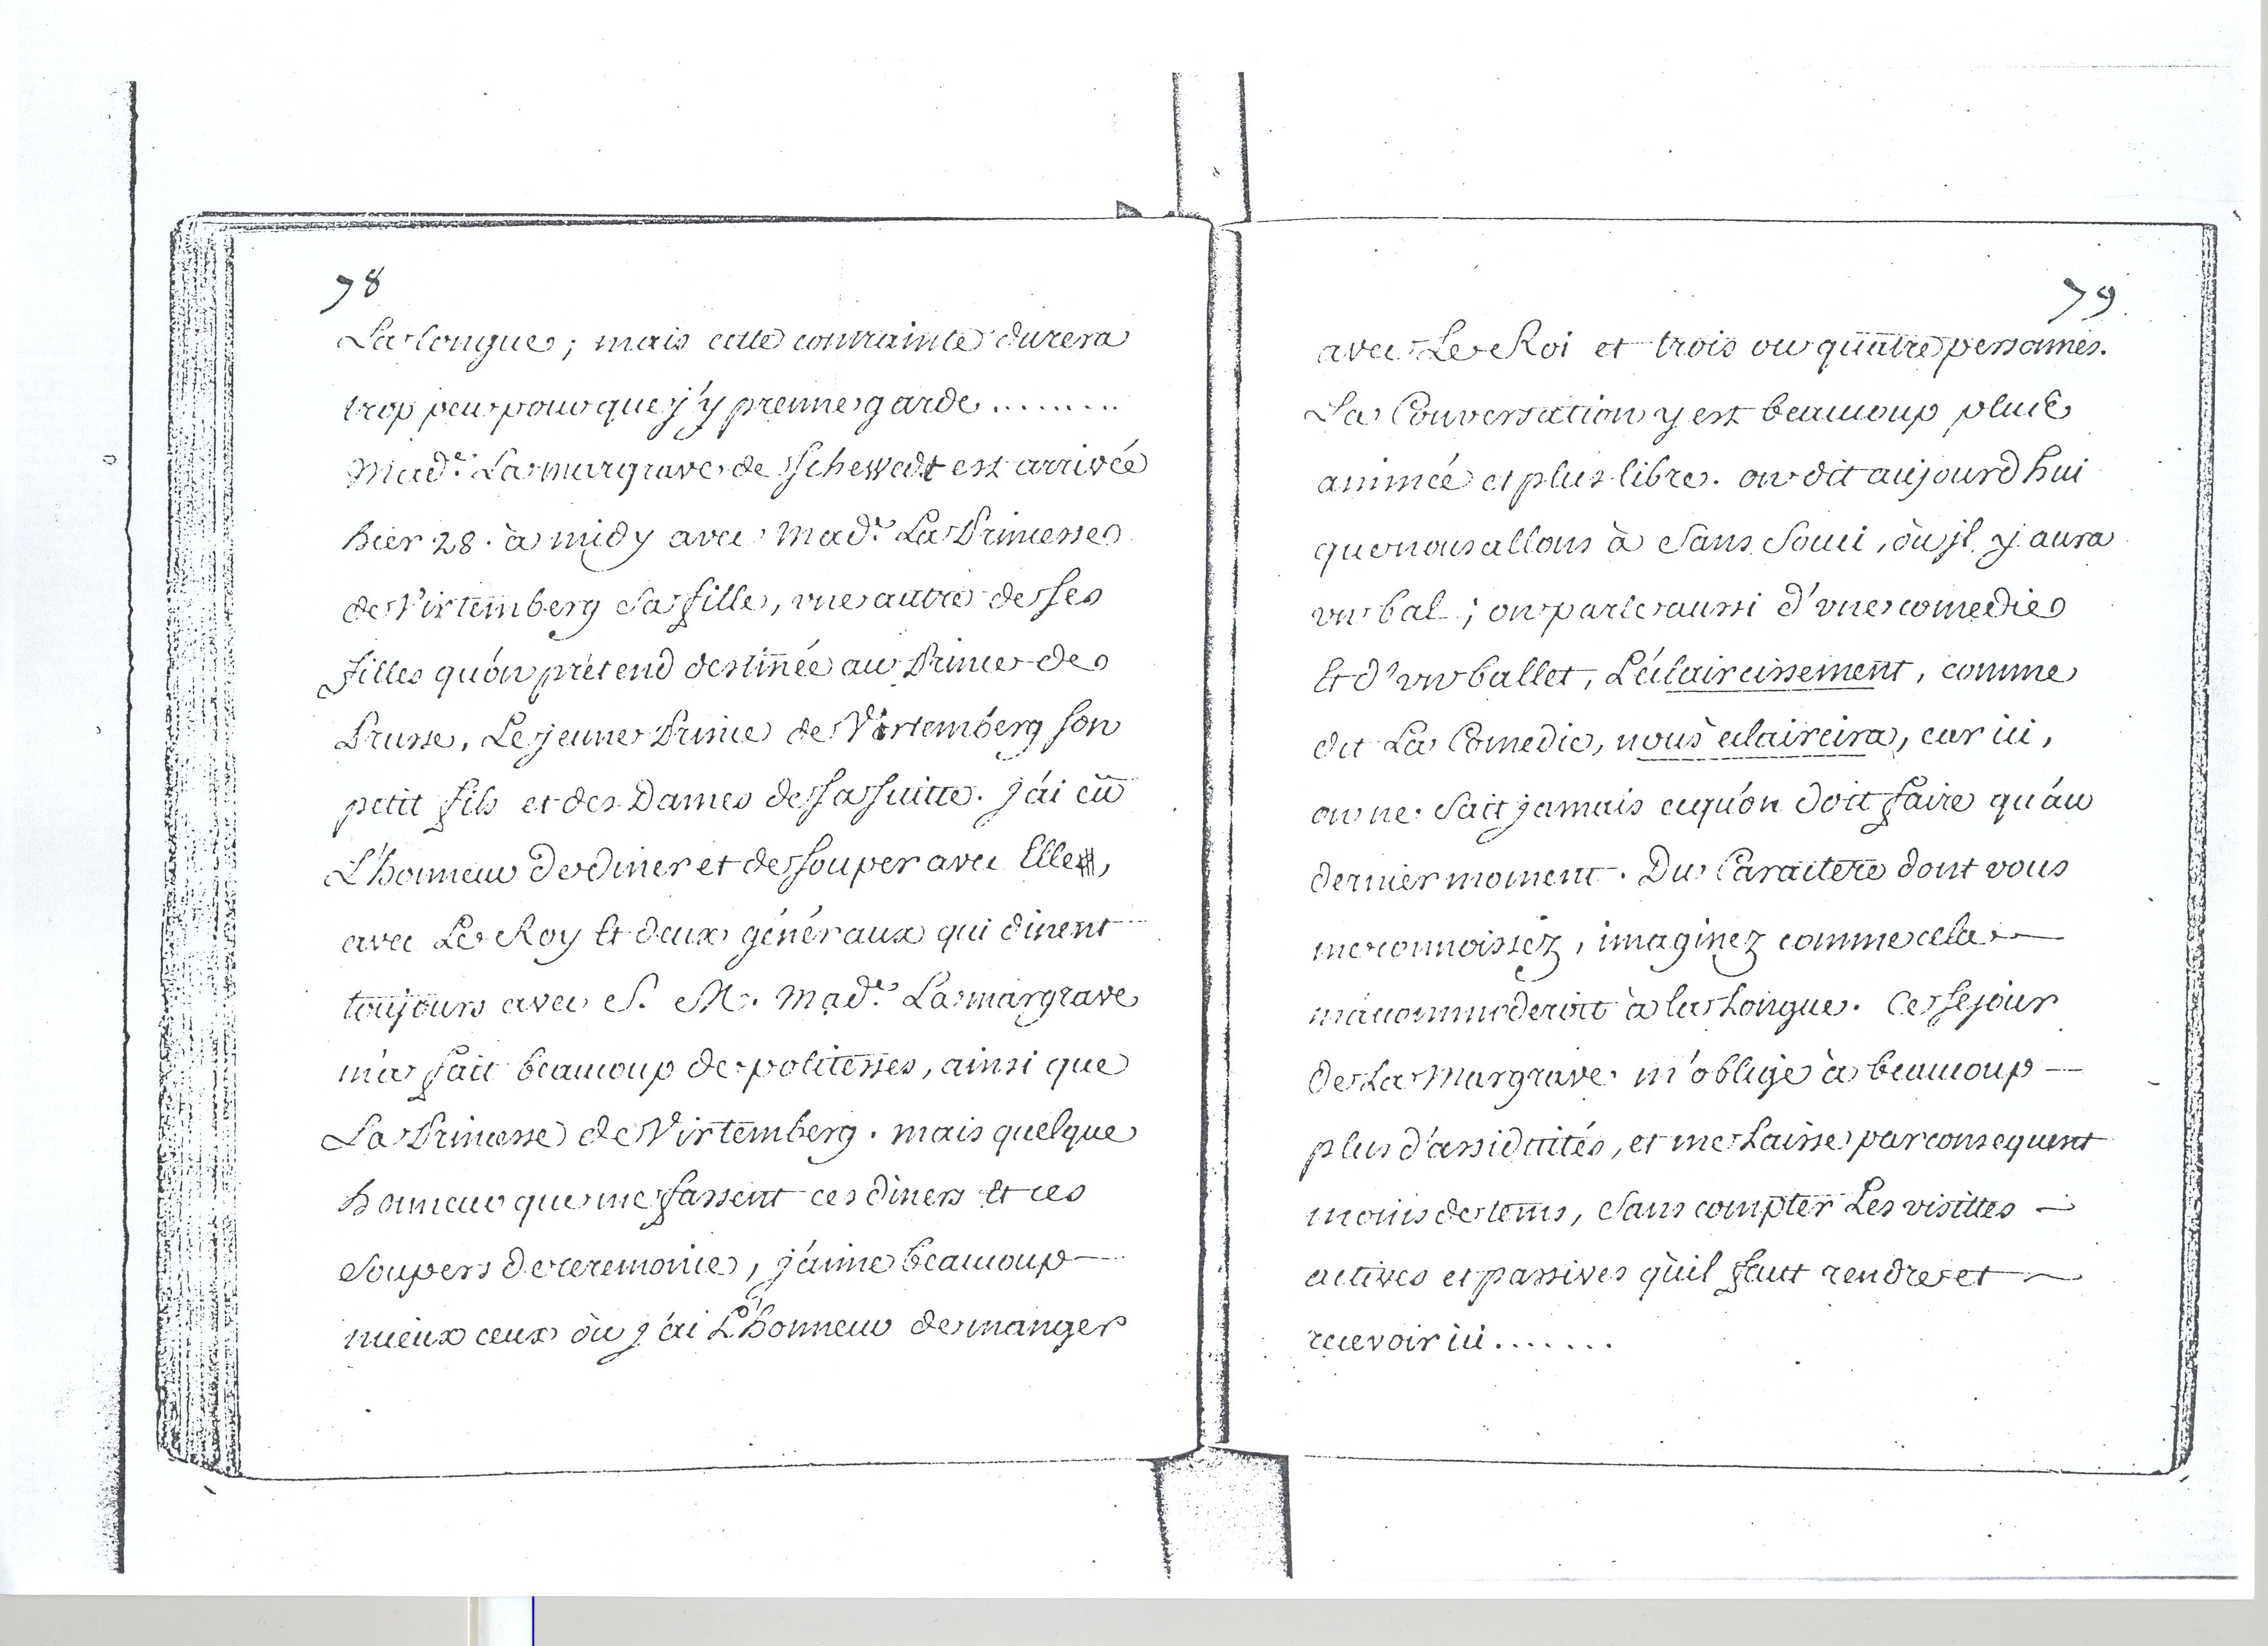 78
La longue; mais cette contrainte durera
trop peu pour que j'y prenne garde.........
Mad.e La margrave de Schewedt est arrivée
hier 28. à midy avec Mad.e La Princesse
de Virtemberg sa fille, vne autre de ses
filles qu'on prétend destinée au Prince de
Prusse, Le jeune Prince de Virtemberg son
petit fils et des Dames de sa suitte. j'ai eû
L'honneur de diner et de souper avec Elle,
avec Le Roy Et deux généraux qui dinent
toujours avec S. M. Mad.e La margrave
m'a fait beaucoup de politesses, ainsi que
La Princesse de Virtemberg. mais quelque
honneur que me fassent ces diners Et ces
soupers de ceremonie, j'aime beaucoup
mieux ceux où j'ai L'honneur de manger
79.
avec Le Roi et trois ou quatre personnes.
La Conversation y est beaucoup plus
animée et plus libre. on dit aujourd hui
que nous allons à Sans Souci, où jl y aura
vn bal; on parle aussi d'vne comedie
Et d'vn ballet, L'éclaircissement, comme
dit La Comedie, nous éclaircira, car ici,
on ne sait jamais ce qu'on doit faire qu'au
dernier moment. Du Caractere dont vous
me connoissez, imaginez comme cela
m'accommoderoit à la Longue. Ce sejour
de La Margrave m'oblige à beaucoup
plus d'assiduités, et me Laisse par consequent
moins de tems, sans compter Les visittes
actives et passives qu'il faut rendre et
recevoir ici.......